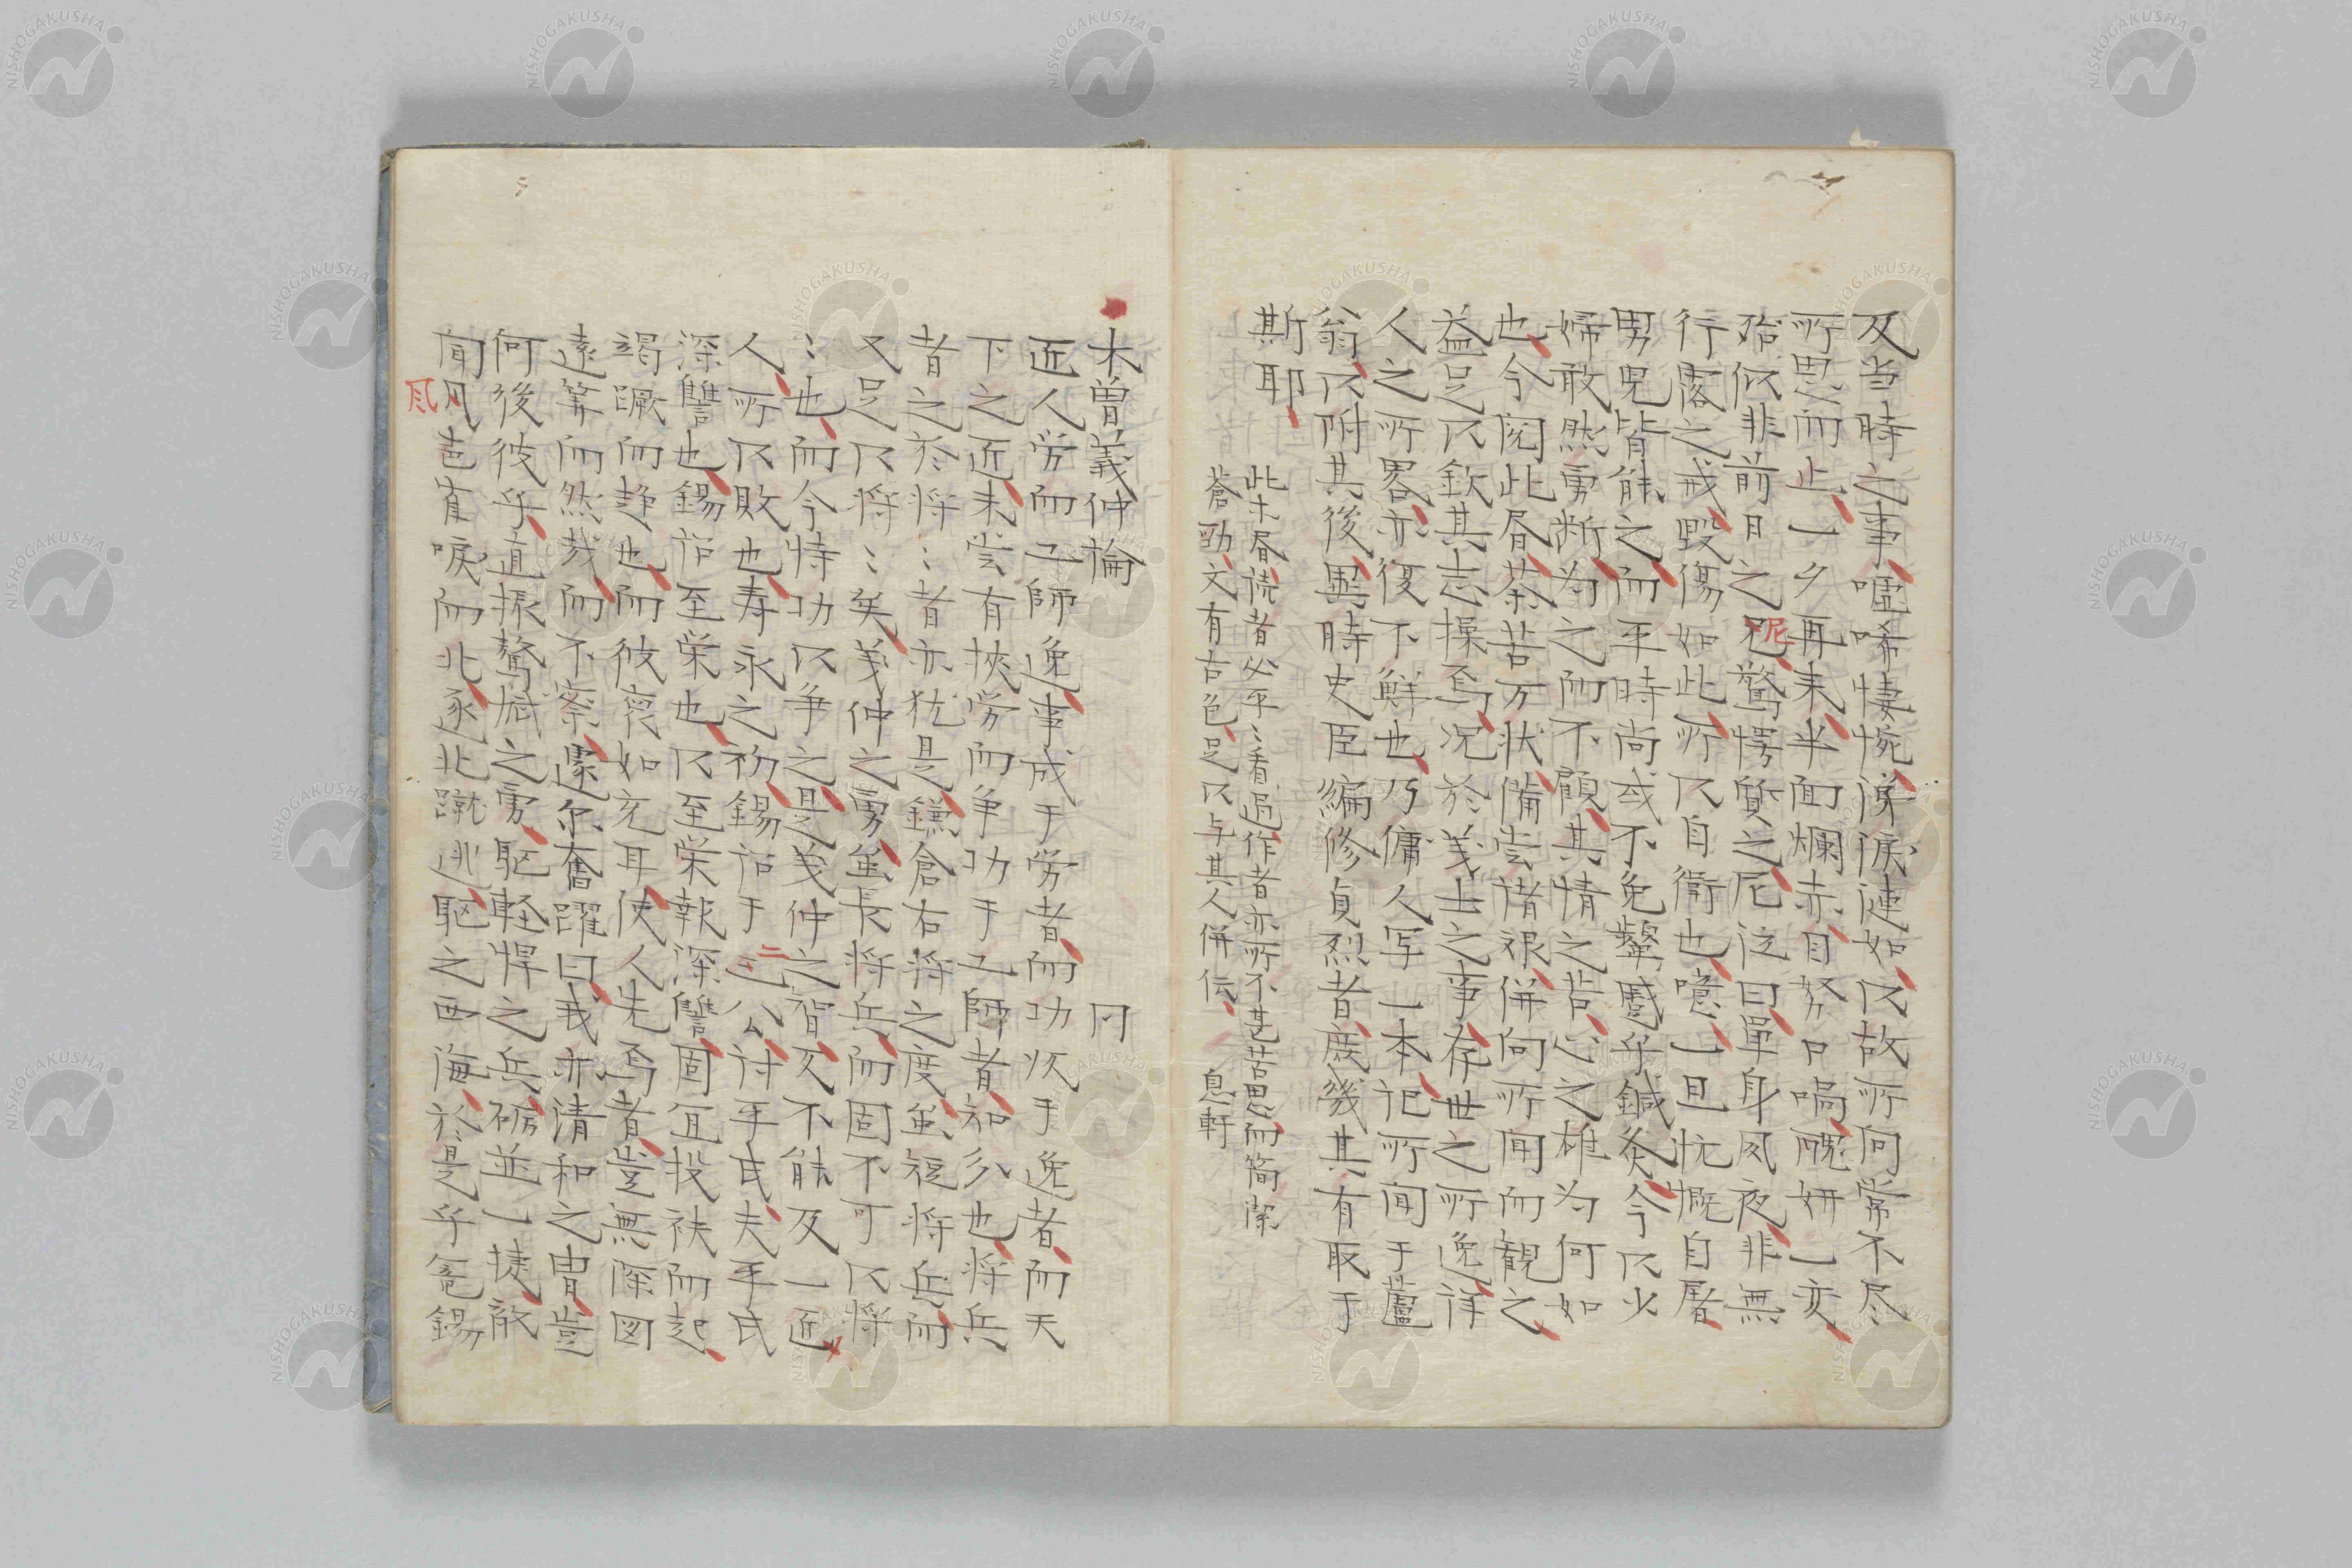 及当時之事嘘唏悽惋涕涙漣如以故所向常不尽
所思而止一夕再来半面爛赤目努口喎醜妍一変
殆似非前日之尼驚愕質之尼泣曰単身夙夜非無
行露之戒毀傷如此所以自衛也噫一旦忼慨自屠
男児皆能之而平時尚或不免顰蹙乎鍼灸今以少
婦敢然勇断為之而不顧其情之苦心之雄為何如
也今閲此眉荼苦万状備嘗諸艱併向所聞而観之
益足以欽其志操焉況於義士之事存世之所逸詳
人之所畧亦復不鮮也乃傭人写一本記所聞于蘆
翁以附其後異時史臣編修貞烈者庶幾其有取于
斯耶
此末眉読者必平〻看過作者亦所不甚苦思而簡潔
蒼勁文有古色足以与其人併伝　息軒
木曽義仲論　　　同
近人労而工師逸事成于労者而功次于逸者而天
下之近未嘗有挾労而争功于工師者知分也将兵
者之於将〻者亦犹是鎌倉右将之度虽短将兵而
又足以将〻矣義仲之勇虽長将兵而固不可以将
〻也而今恃功以争之是義仲之智又不能及一近
人所以敗也寿永之初錫詔于二公討平氏夫平氏
深讐也錫詔至栄也以至栄報深讐固宜投袂而起
竭蹶而趋也而彼褒如充耳使人先焉者豈無深図
遠筭而然哉而不察遽尓奮躍曰我亦清和之冑豈
何後彼乎直振驁娍之勇駆軽悍之兵砺並一捷敵
聞风声有唳而北逐北蹴逃駆之西海於是乎寵錫
風